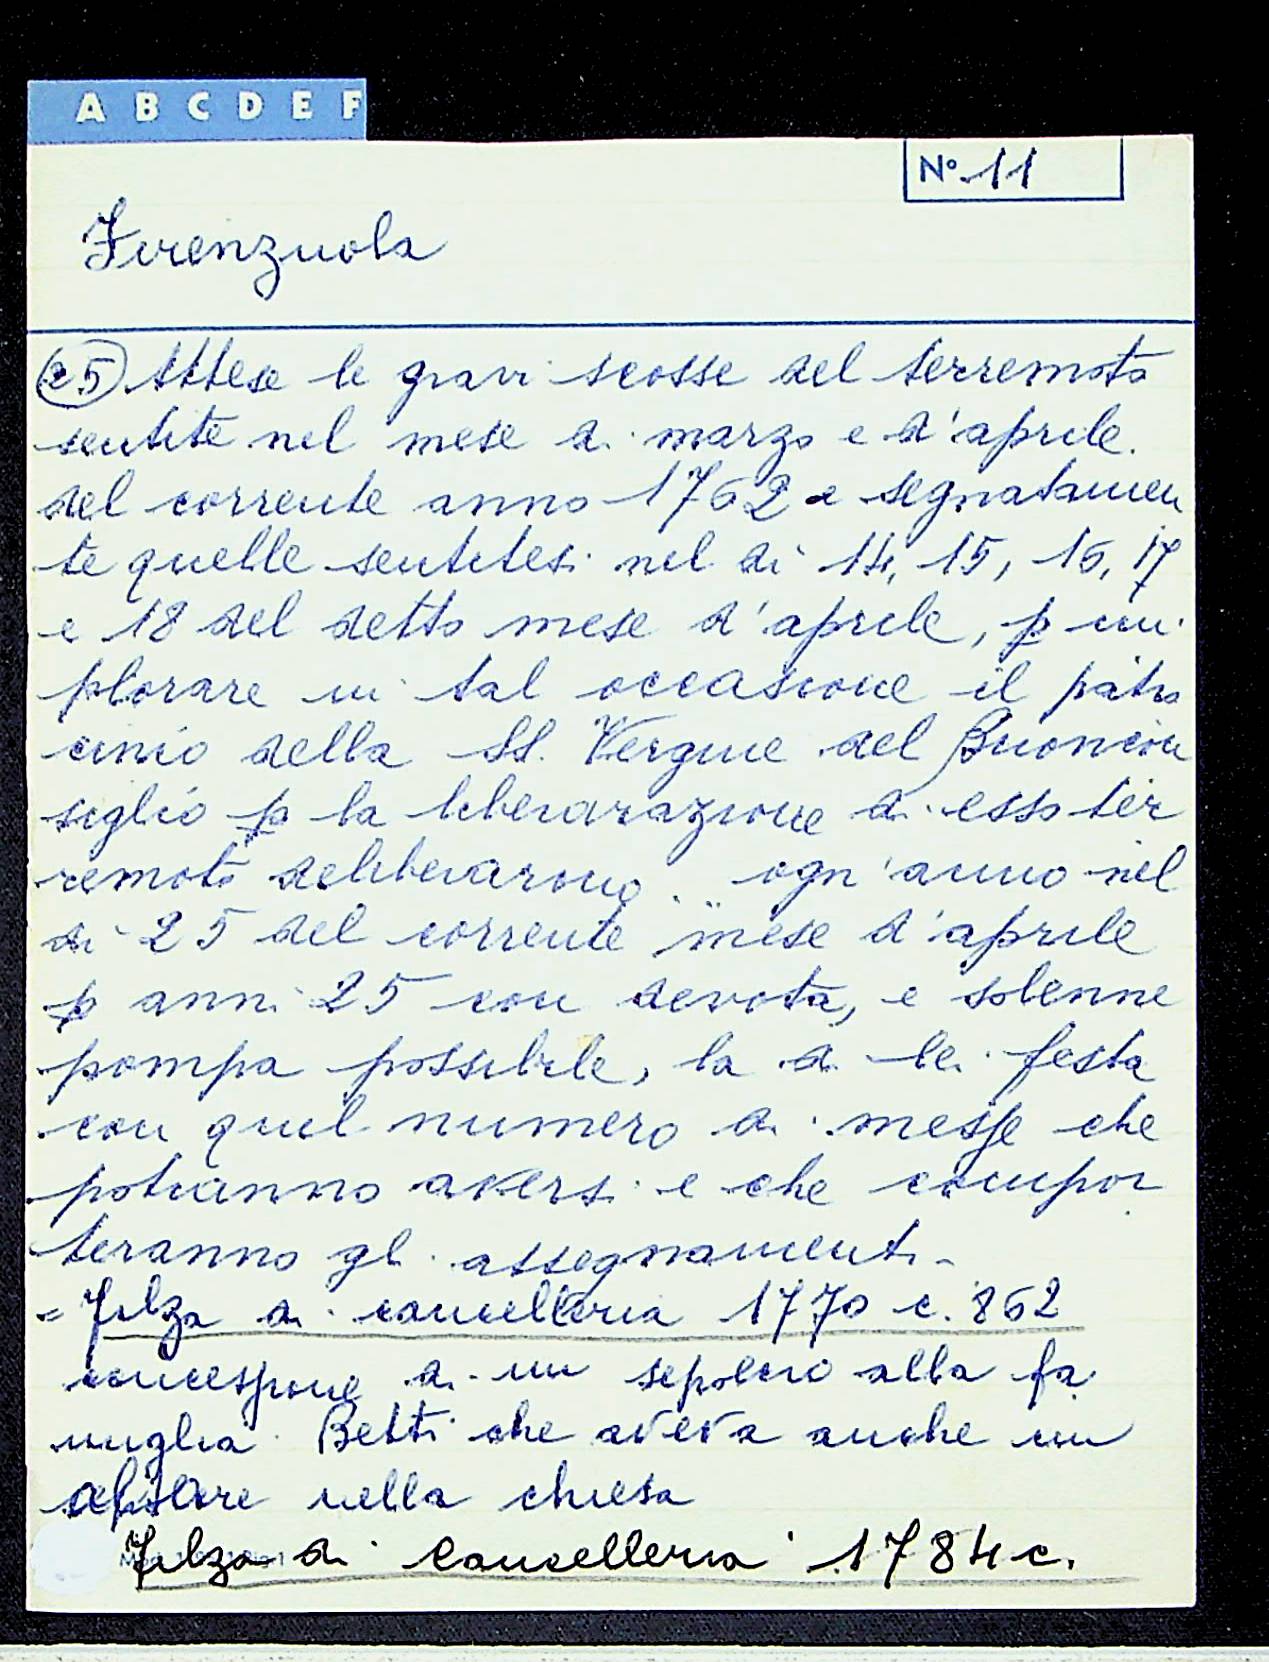 A B C D E F
N° 11
Firenzuola
25 Attese le gravi scosse del terremoto
sentite nel mese di marzo e d'aprile
del corrente anno 1762 e segnatamen
te quelle sentitesi nel dì 14, 15, 16, 17
e 18 del detto mese d'aprile, p im
plorare in tal occasione il patro
cinio della SS. Vergine del Buoncon
siglio p la liberarazione di esso ter
remoto deliberarono... ogn'anno nel
dì 25 del corrente mese d'aprile
p anni 25 con devota, e solenne
pompa possibile, la di lei festa
con quel numero di messe che
potranno aversi e che compor
teranno gl assegnamenti -
= Filza di cancelleria 1770 c. 862
concessione di un sepolcro alla fa
miglia Betti che aveva anche un
altare nella chiesa
Filza di Cancelleria 1784 c.